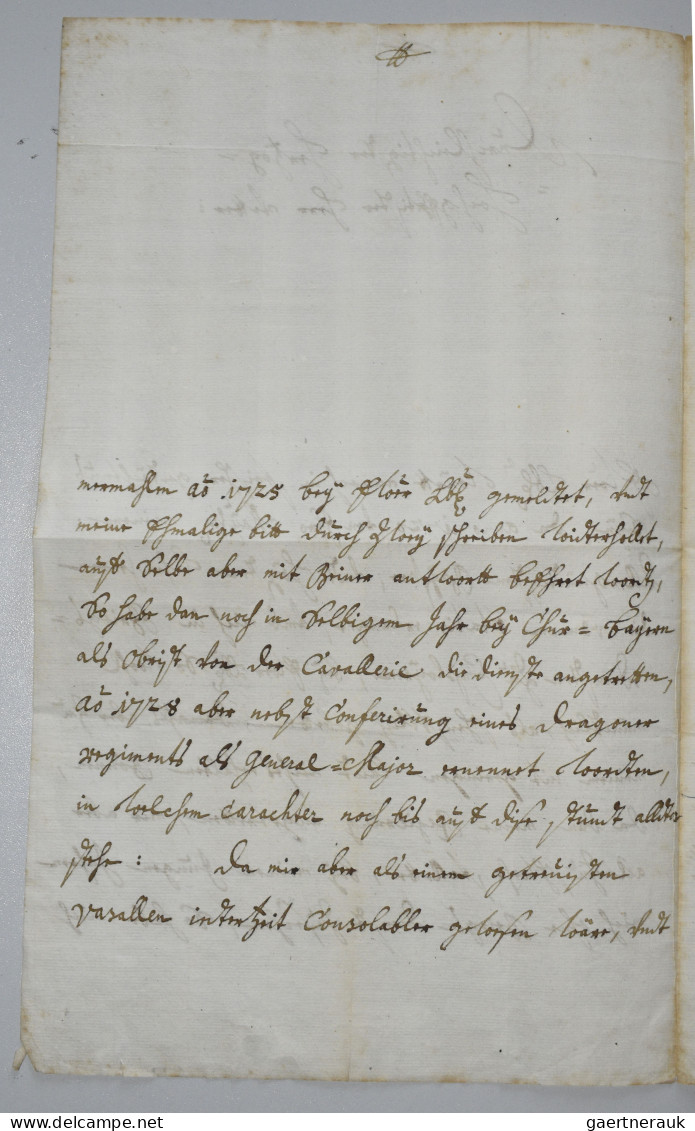 nermahlen aõ 1725 bey gemeldtet, undt
meine Ehmalige bitt durch Zwey schreiben widerhollet,
auff Selbe aber mit Keiner antwortt beEhret wordtẽ,
So habe dan noch in Selbigem Jahr bey Chur= bayern
als Obrist von der Cavallerie die dienste angetretten,
aõ 1728 aber nebst Conferirung eines Dragoner
regiments als General=Major ernennet wordten,
in welchem Carachter noch bis auff dise stundt allda
stehe : Da mir aber als einem getreuisten
vasallen iederzeit Consolabler gewesen wäre, undt
gaertnerauk